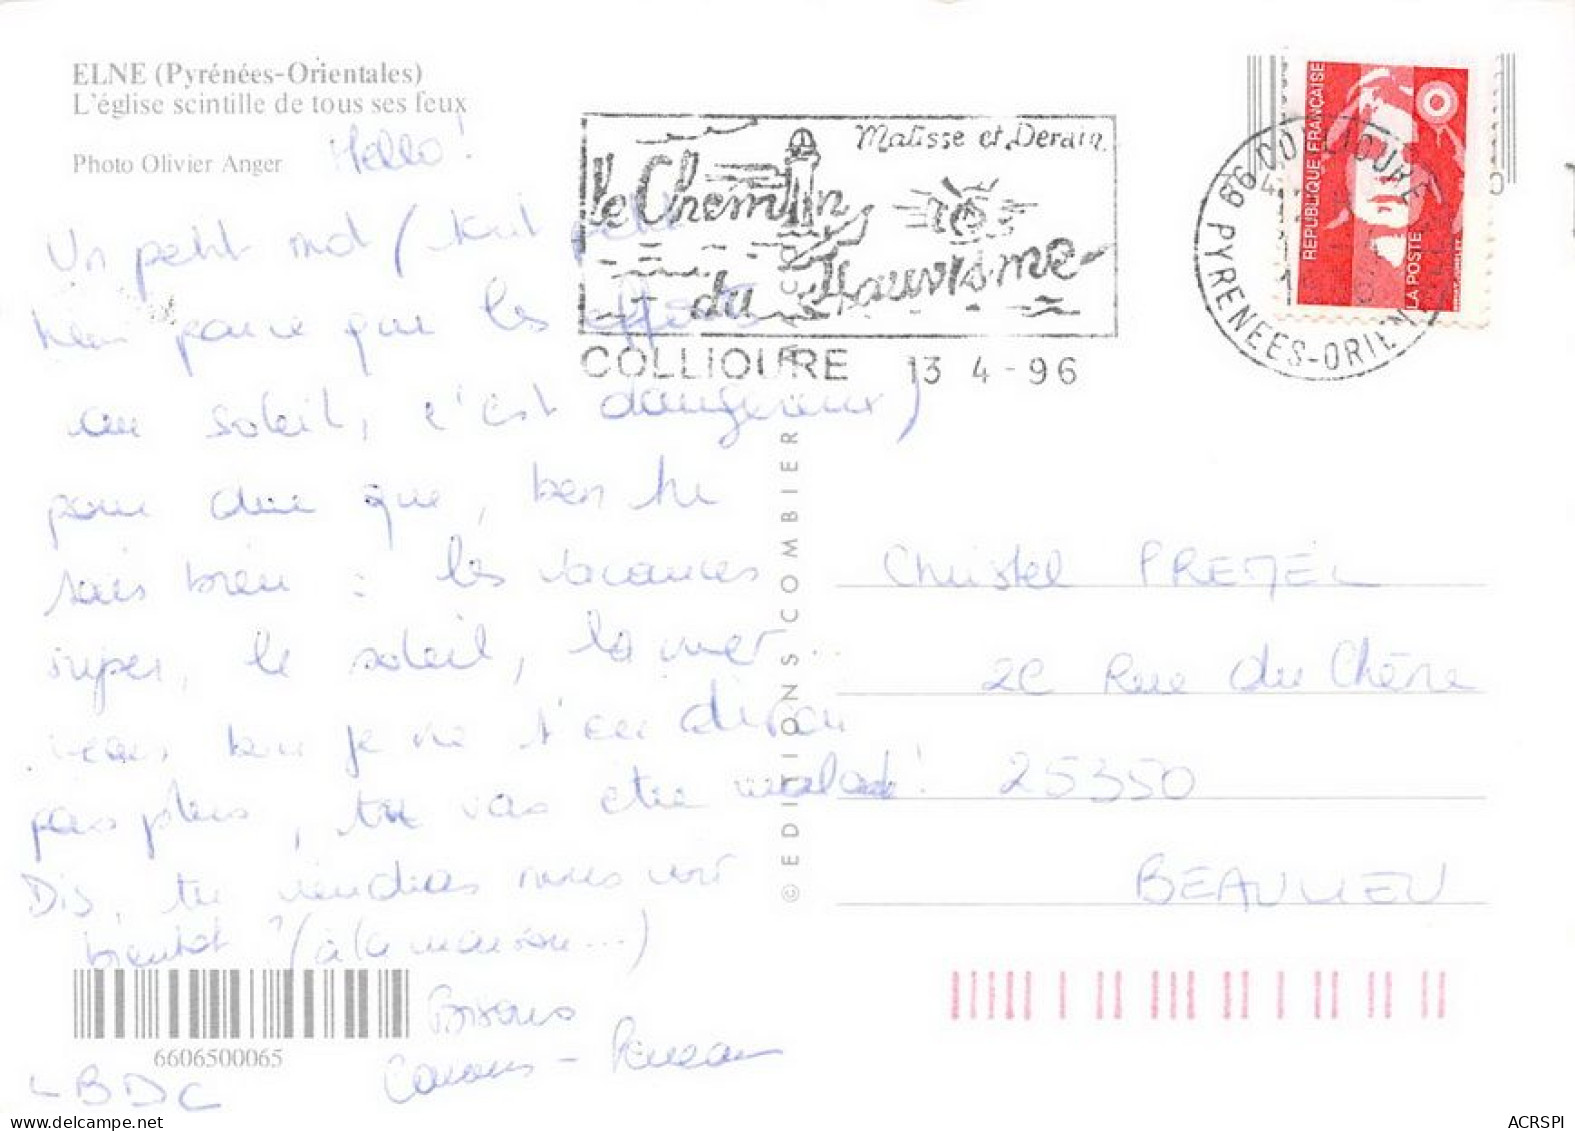 ELNE (Pyrénées-Orientales)
L'église scintille de tous ses feux
Photo Olivier Anger
Hello!
Un petit mot (tout petit
hein parce que les efforts
au soleil, c'est dangereux)
pour dire que, ben tu
sais bien : les vacances
super, le soleil, la mer...
mais bon je ne t'en dirai
pas plus, tu vas être malade!
Dis, tu viendras nous voir
bientôt ? (à la maison...)
Bisous
6606500065
Matisse et Derain
le Chemin
du Fauvisme
COLLIOURE 13 4-96
REPUBLIQUE FRANÇAISE
LA POSTE
66 COLLIOURE
PYRENEES-ORIENTALES
© EDITIONS COMBIER MACON
Christel PREMEL
2C Rue du Chêne
25350
BEAULIEU
ACRSPI